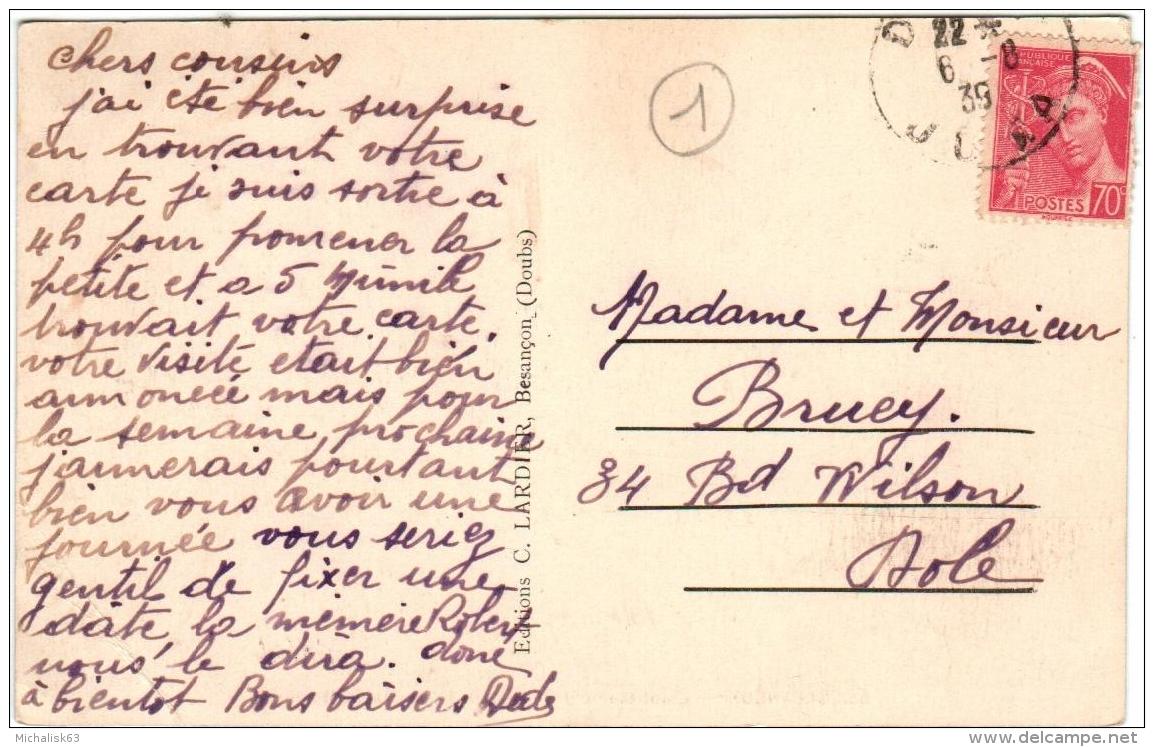 chers cousins
j'ai été bien surprise
en trouvant votre
carte je suis sortie à
4h pour promener la
petite et a 5 minute
trouvait votre carte.
votre visite etait bien
annoncée mais pour
la semaine prochaine
j'aimerais pourtant
bien vous avoir une
journée vous seriez
gentil de fixer une
date la mémère Robert
nous le dira. donc
à bientot Bons baisers Dede
Editions C. LARDIER, Besançon (Doubs)
1
22 *
6 -8
39
REPUBLIQUE
FRANÇAISE
POSTES 70c
Madame et Monsieur
Bruey.
34 Bd Wilson
Dole
Michalisk63
delcampe.net